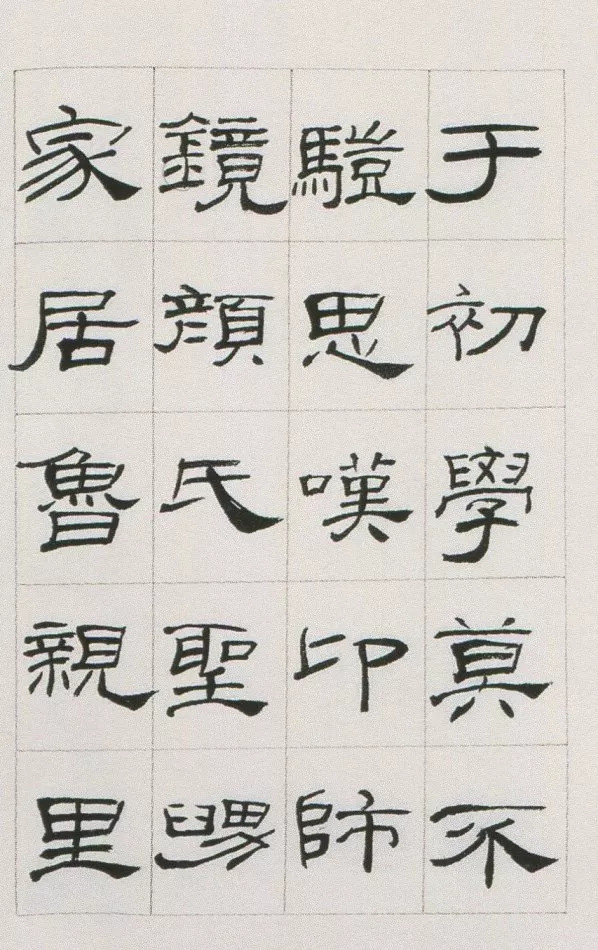 于初學莫不
䮗思嘆卬師
鏡顏氏聖舅
家居魯親里